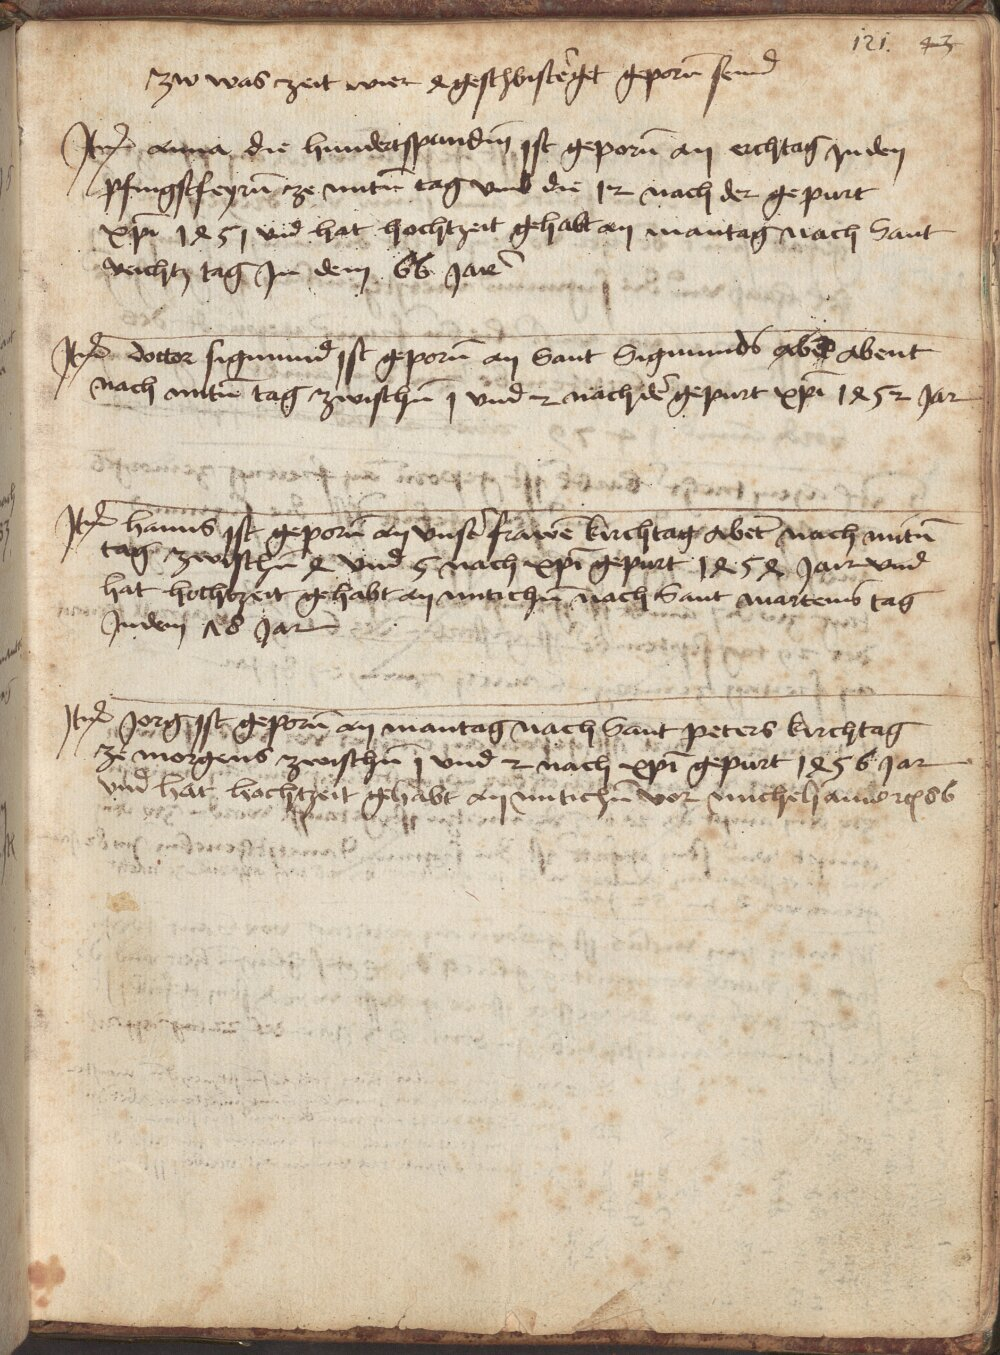 121. 43
zw was zeit wier 4 geschbistẽrget geporñ send
Itm̃ anna die hunderspundiñ ist geporñ an erchtag in den
pfingstfeyrñ ze mittñ tag vmb die 12 nach der gepurt
xp̃i 1451 vnd hat hochtzeit gehabt an mantag nach Sant
veichtz tag In dem 66 Jar
Itm̃ doctor sigmund ist geporñ an Sant Sigmunds abent
nach mittñ tag zwischñ 1 vnd 2 nach der gepurt xp̃i 1452 Jar
Itm̃ hanns ist geporñ an vnsẽr frawẽ kirchtag abet̃ nach mittñ
tag zwischñ 4 vnd 5 nach xp̃i gepurt 1454 Jar vnd
hat hochtzeit gehabt an mitichñ nach Sant marteins tag
In dem 78 Jar
Itm̃ Jorg ist geporñ an mantag nach Sant peters kirchtag
ze morgens zwischñ 1 vnd 2 nach xp̃i gepurt 1456 Jar
vnd hat hochtzeit gehabt an mitichñ vor michelj anno 86